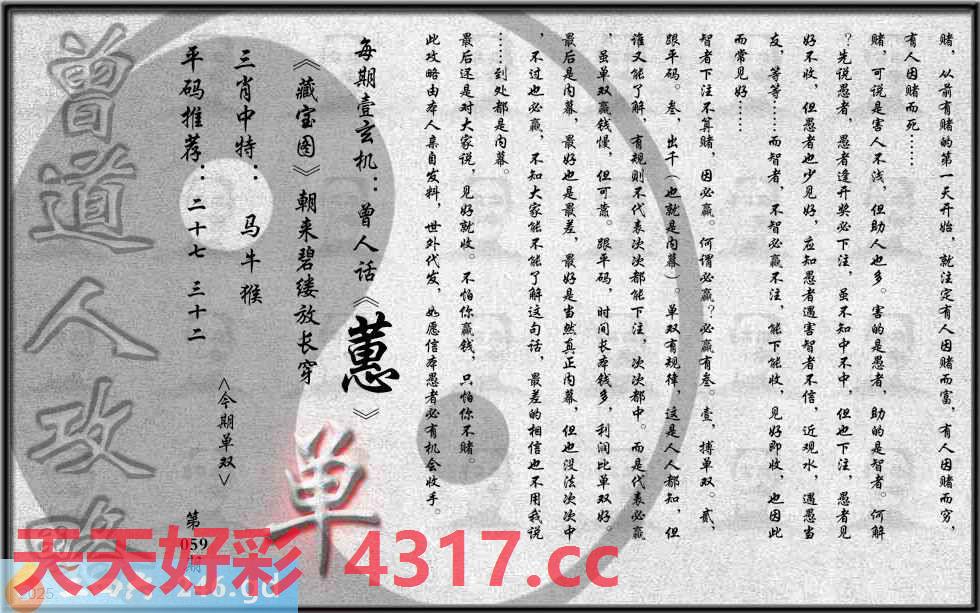 赌，从前有赌的第一天开始，就注定有人因赌而富，有人因赌而穷，
有人因赌而死……
赌，可说是害人不浅，但助人也多。害的是愚者，助的是智者。何解
？先说愚者，愚者逢开奖必下注，虽不知中不中，但也下注，愚者见
好不收，但愚者也少见好，应知愚者遇害智者不信，近观水，遇愚当
友，等等……而智者，不智必赢不注，能下能收，见好即收，也因此
而常见好……
智者下注不算赌，因必赢。何谓必赢？必赢有叁。壹，搏单双。贰，
跟平码。叁，出千（也就是内幕）。单双有规律，这是人人都知，但
谁又能了解，有规则不代表次次都能下注，次次都中。而是代表必赢
，虽单双赢钱慢，但可靠。跟平码，时间长本钱多，利润比单双好。
最后是内幕，最好也是最差，最好是当然真正内幕，但也没法次次中
，不过也必赢，不知大家能不能了解这句话，最差的相信也不用我说
……到处都是内幕。
最后还是对大家说，见好就收。不怕你赢钱，只怕你不赌。
此攻略由本人亲自发料，世外代发，如愿信本愚者必有机会收手。
每期壹玄机：曾人话《蕙》
《藏宝图》朝来碧缕放长穿
三肖中特：马牛猴
平码推荐：二十七 三十二
<今期单双>
单
第059期
曾道人攻略
天天好彩 4317.cc
2025
246.gd